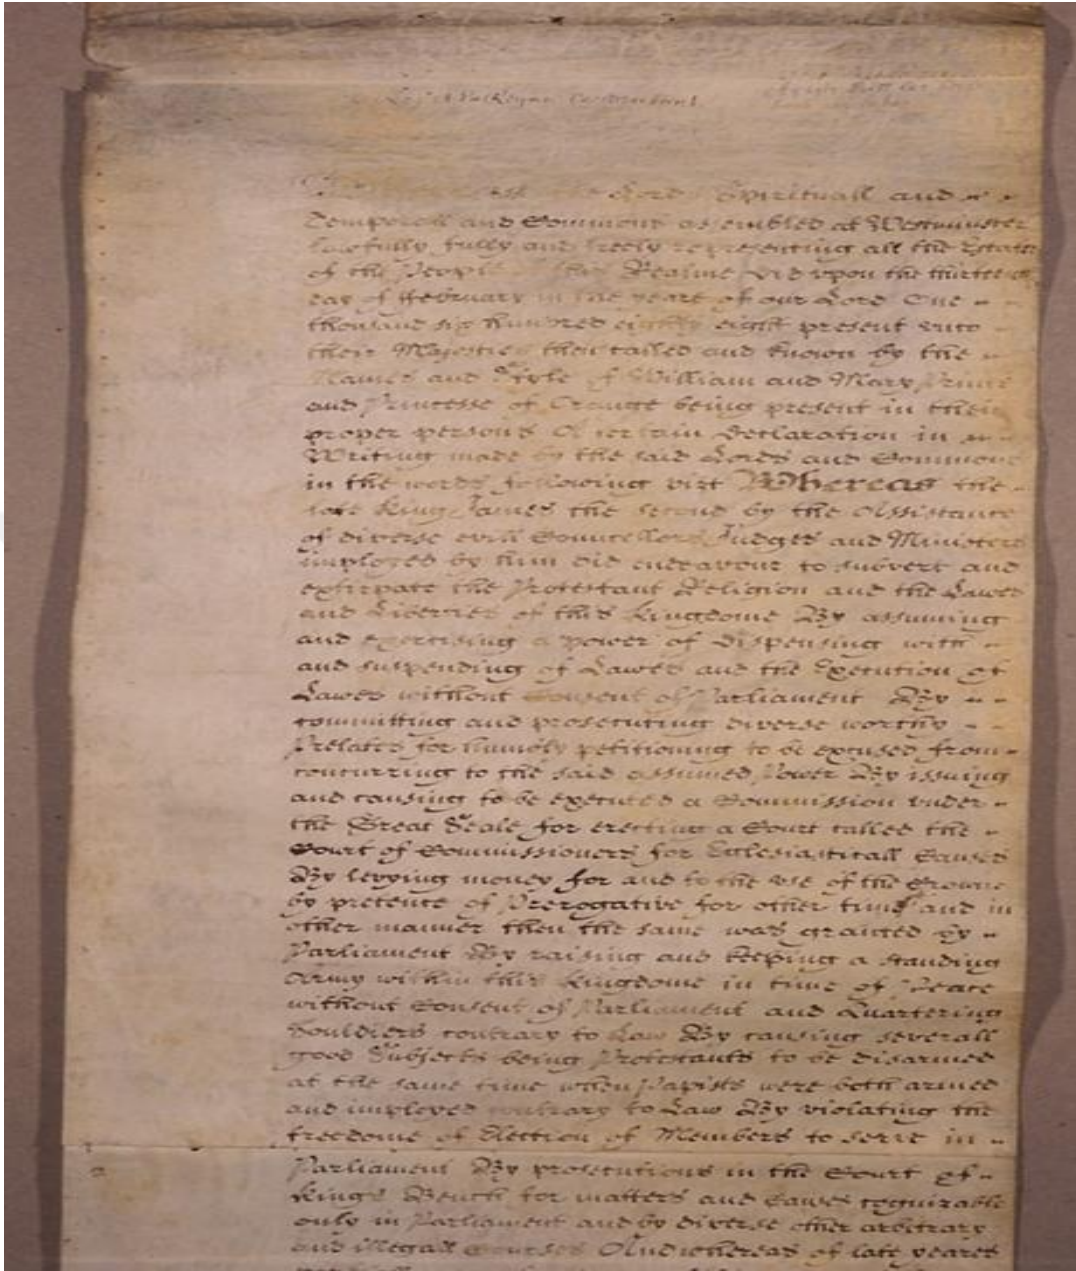 Lords Spirituall and
Temporall and Commons assembled at Westminster
lawfully fully and freely representing all the Estates
of the People of this Realme did upon the thirteenth
day of February in the yeare of our Lord One
thousand six hundred eighty eight present unto
their Majesties then called and known by the
Names and Style of William and Mary Prince
and Princesse of Orange being present in their
proper persons A certain Declaration in
Writing made by the said Lords and Commons
in the words following vizt Whereas the
late King James the Second by the Assistance
of diverse evill Councellors Judges and Ministers
imployed by him did endeavour to subvert and
extirpate the Protestant Religion and the Lawes
and Liberties of this Kingdome By assuming
and exercising a Power of Dispensing with
and suspending of Lawes and the Execution of
Lawes without Consent of Parliament By
committing and prosecuting diverse worthy
Prelates for humbly petitioning to be excused from
concurring to the said assumed Power By issuing
and causing to be executed a Commission under
the Great Seale for erecting a Court called the
Court of Commissioners for Ecclesiasticall Causes
By levying money for and to the use of the Crowne
by pretence of Prerogative for other time and in
other manner then the same was granted by
Parliament By raising and keeping a standing
Army within this Kingdome in time of Peace
without Consent of Parliament and Quartering
Souldiers contrary to Law By causing severall
good Subjects being Protestants to be disarmed
at the same time when Papists were both armed
and imployed contrary to Law By violating the
freedome of Election of Members to serve in
Parliament By prosecutions in the Court of
Kings Bench for matters and Causes cognizable
only in Parliament and by diverse other arbitrary
and illegall Courses And whereas of late yeares